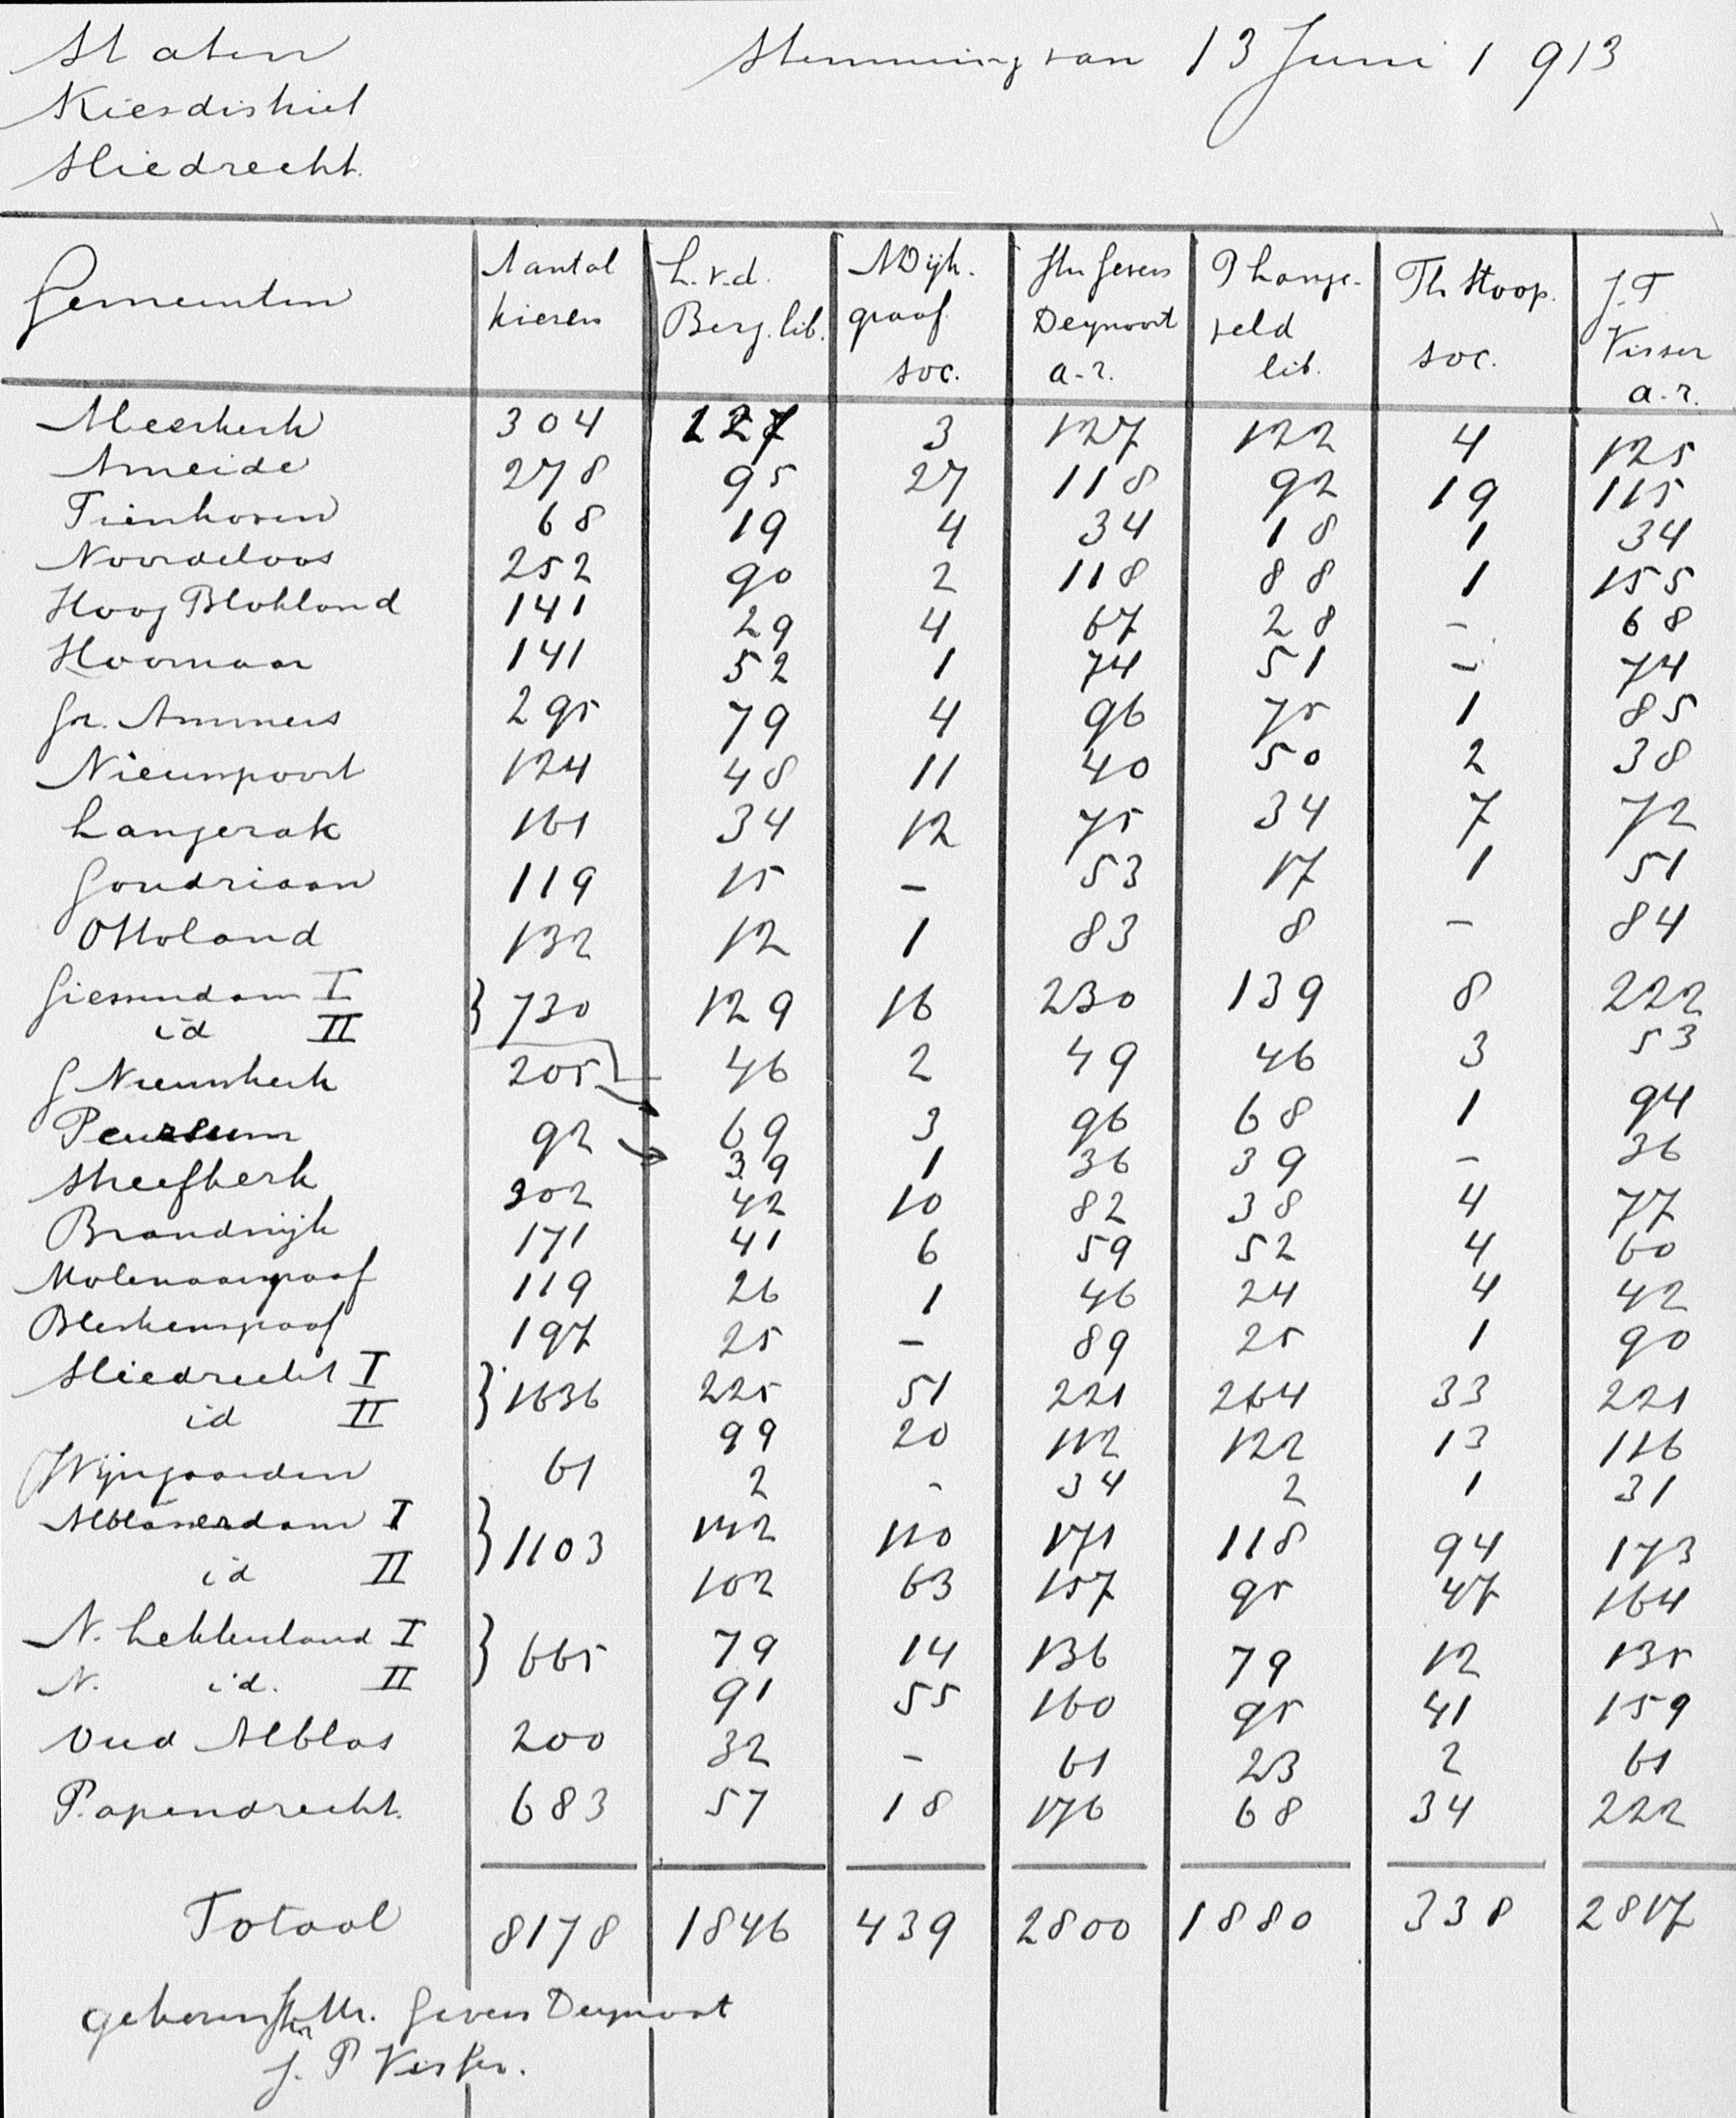 Staten Stemming van 13 Juni 1913
Kiesdistrict
Sliedrecht.
Gemeenten Aantal kiezers L. v.d. Berg. lib. N Dijk. graaf soc. Jhr Gevers Deynoort a-r. P Lange. veld lib. Th Stoop. soc. J. T Visser a.r.
Meerkerk 304 127 3 127 122 4 125
Ameide 278 95 27 118 92 19 115
Tienhoven 68 19 4 34 18 1 34
Noordeloos 252 90 2 118 88 1 155
Hoog Blokland 141 29 4 67 28 - 68
Hoornaar 141 52 1 74 51 - 74
Gr. Ammers 295 79 4 96 75 1 85
Nieuwpoort 124 48 11 40 50 2 38
Langerak 161 34 12 75 34 7 72
Goudriaan 119 15 - 53 17 1 51
Ottoland 132 12 1 83 8 - 84
Giessendam I } 730 129 16 230 139 8 222
id II 46 2 49 46 3 53
G Nieuwkerk 205 69 3 96 68 1 94
Peursum 92 39 1 36 39 - 36
Streefkerk 302 42 10 82 38 4 77
Brandwijk 171 41 6 59 52 4 60
Molenaarsgraaf 119 26 1 46 24 4 42
Bleskensgraaf 197 25 - 89 25 1 90
Sliedrecht I } 1636 225 51 221 264 33 221
id II 99 20 112 122 13 116
Wijngaarden 61 2 - 34 2 1 31
Alblasserdam I } 1103 142 110 171 118 94 173
id II 102 63 157 95 47 164
N. Lekkerland I } 665 79 14 136 79 12 135
N. id. II 91 55 160 95 41 159
Oud Alblas 200 32 - 61 23 2 61
Papendrecht. 683 57 18 176 68 34 222
Totaal 8178 1846 439 2800 1880 338 2817
gekozen Jhr Mr. Gevers Deynoort
J. P Visser.